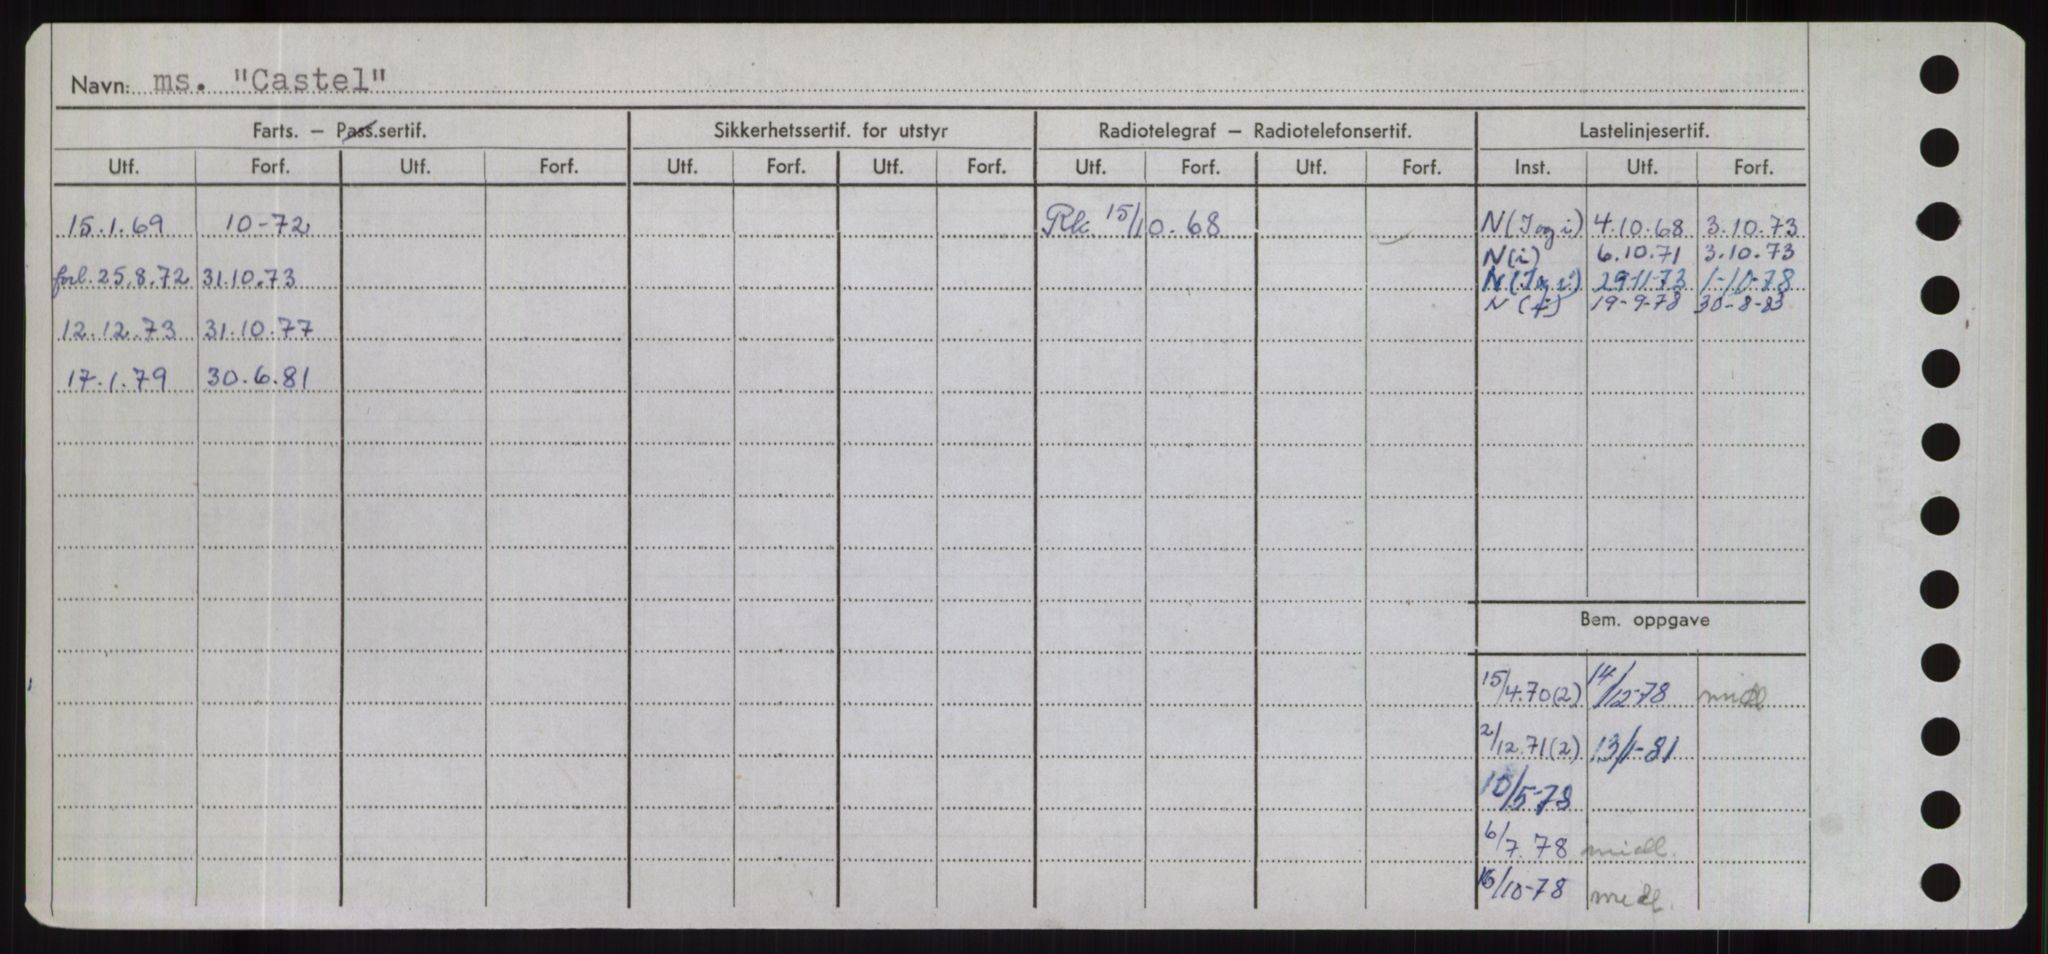 Navn: ms. "Castel"
Farts. – Pass.sertif. Sikkerhetssertif. for utstyr Radiotelegraf – Radiotelefonsertif. Lastelinjesertif.
Utf. Forf. Utf. Forf. Utf. Forf. Utf. Forf. Utf. Forf. Utf. Forf. Inst. Utf. Forf.
15.1.69 10-72 Rk. 15/10.68 N(I og i) 4.10.68 3.10.73
N(i) 6.10.71 3.10.73
forl. 25.8.72 31.10.73 N(I og i) 29-11-73 1-10-78
N 19-9-78 30-8-83
12.12.73 31.10.77
17.1.79 30.6.81
Bem. oppgave
15/4.70(2) 14/12-78 midl
2/12.71(2) 13/1-81
10/5-78
6/7.78 midl.
16/10-78 midl.